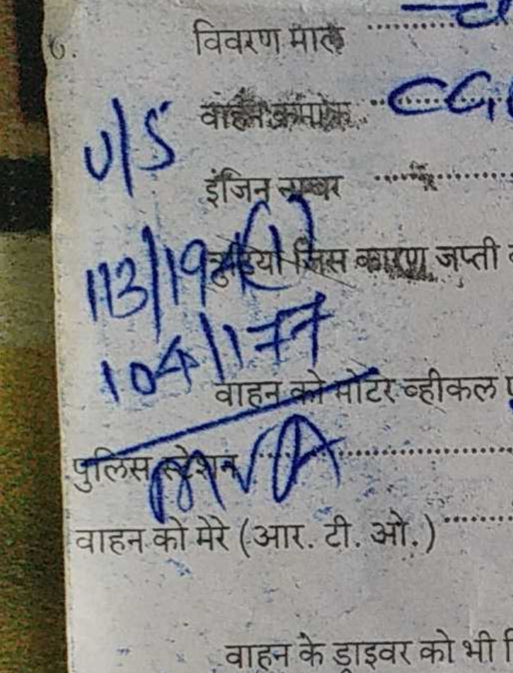 6. विवरण माल
वाहन क्रमांक CG
U/S
इंजिन नम्बर
113/194(1)
त्रुटियां जिस कारण जप्ती
104/177
वाहन को मोटर व्हीकल
पुलिस स्टेशन
MVA
वाहन को मेरे (आर. टी. ओ.)
वाहन के ड्राइवर को भी